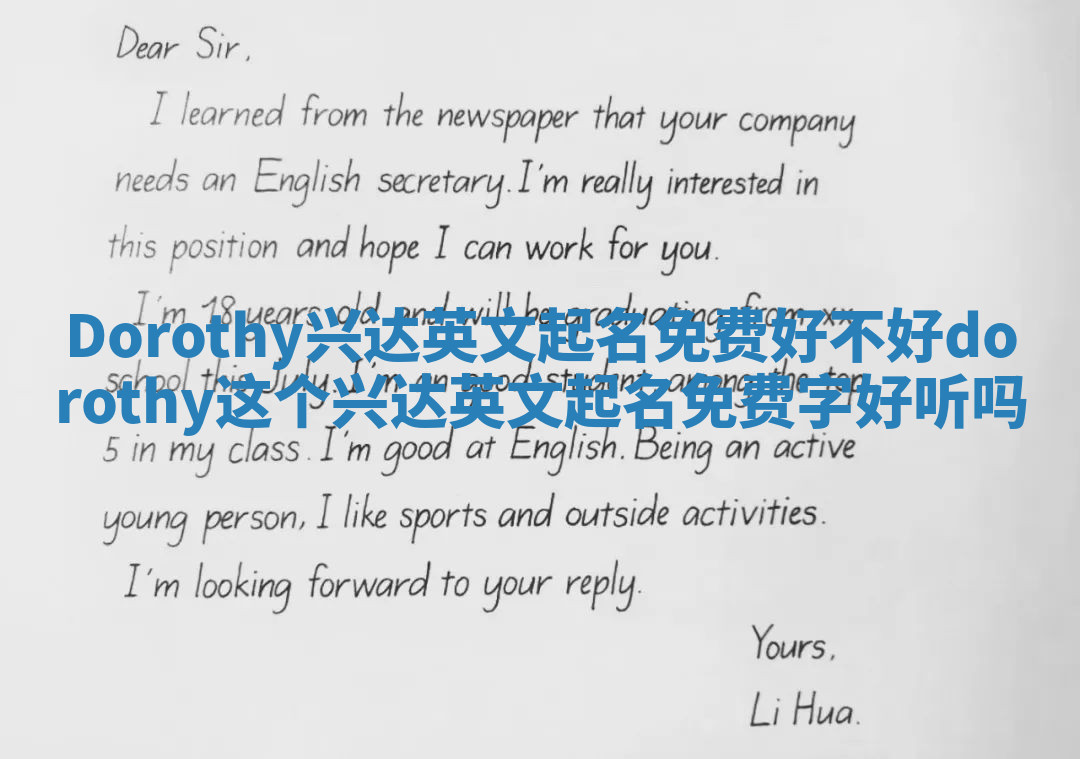 Dear Sir,
I learned from the newspaper that your company
needs an English secretary. I'm really interested in
this position and hope I can work for you.
I'm 18 years old and will be graduating from xx
Dorothy兴达英文起名免费好不好do
school this July. I'm an good student, among the top
rothy这个兴达英文起名免费字好听吗
5 in my class. I'm good at English. Being an active
young person, I like sports and outside activities.
I'm looking forward to your reply.
Yours,
Li Hua.